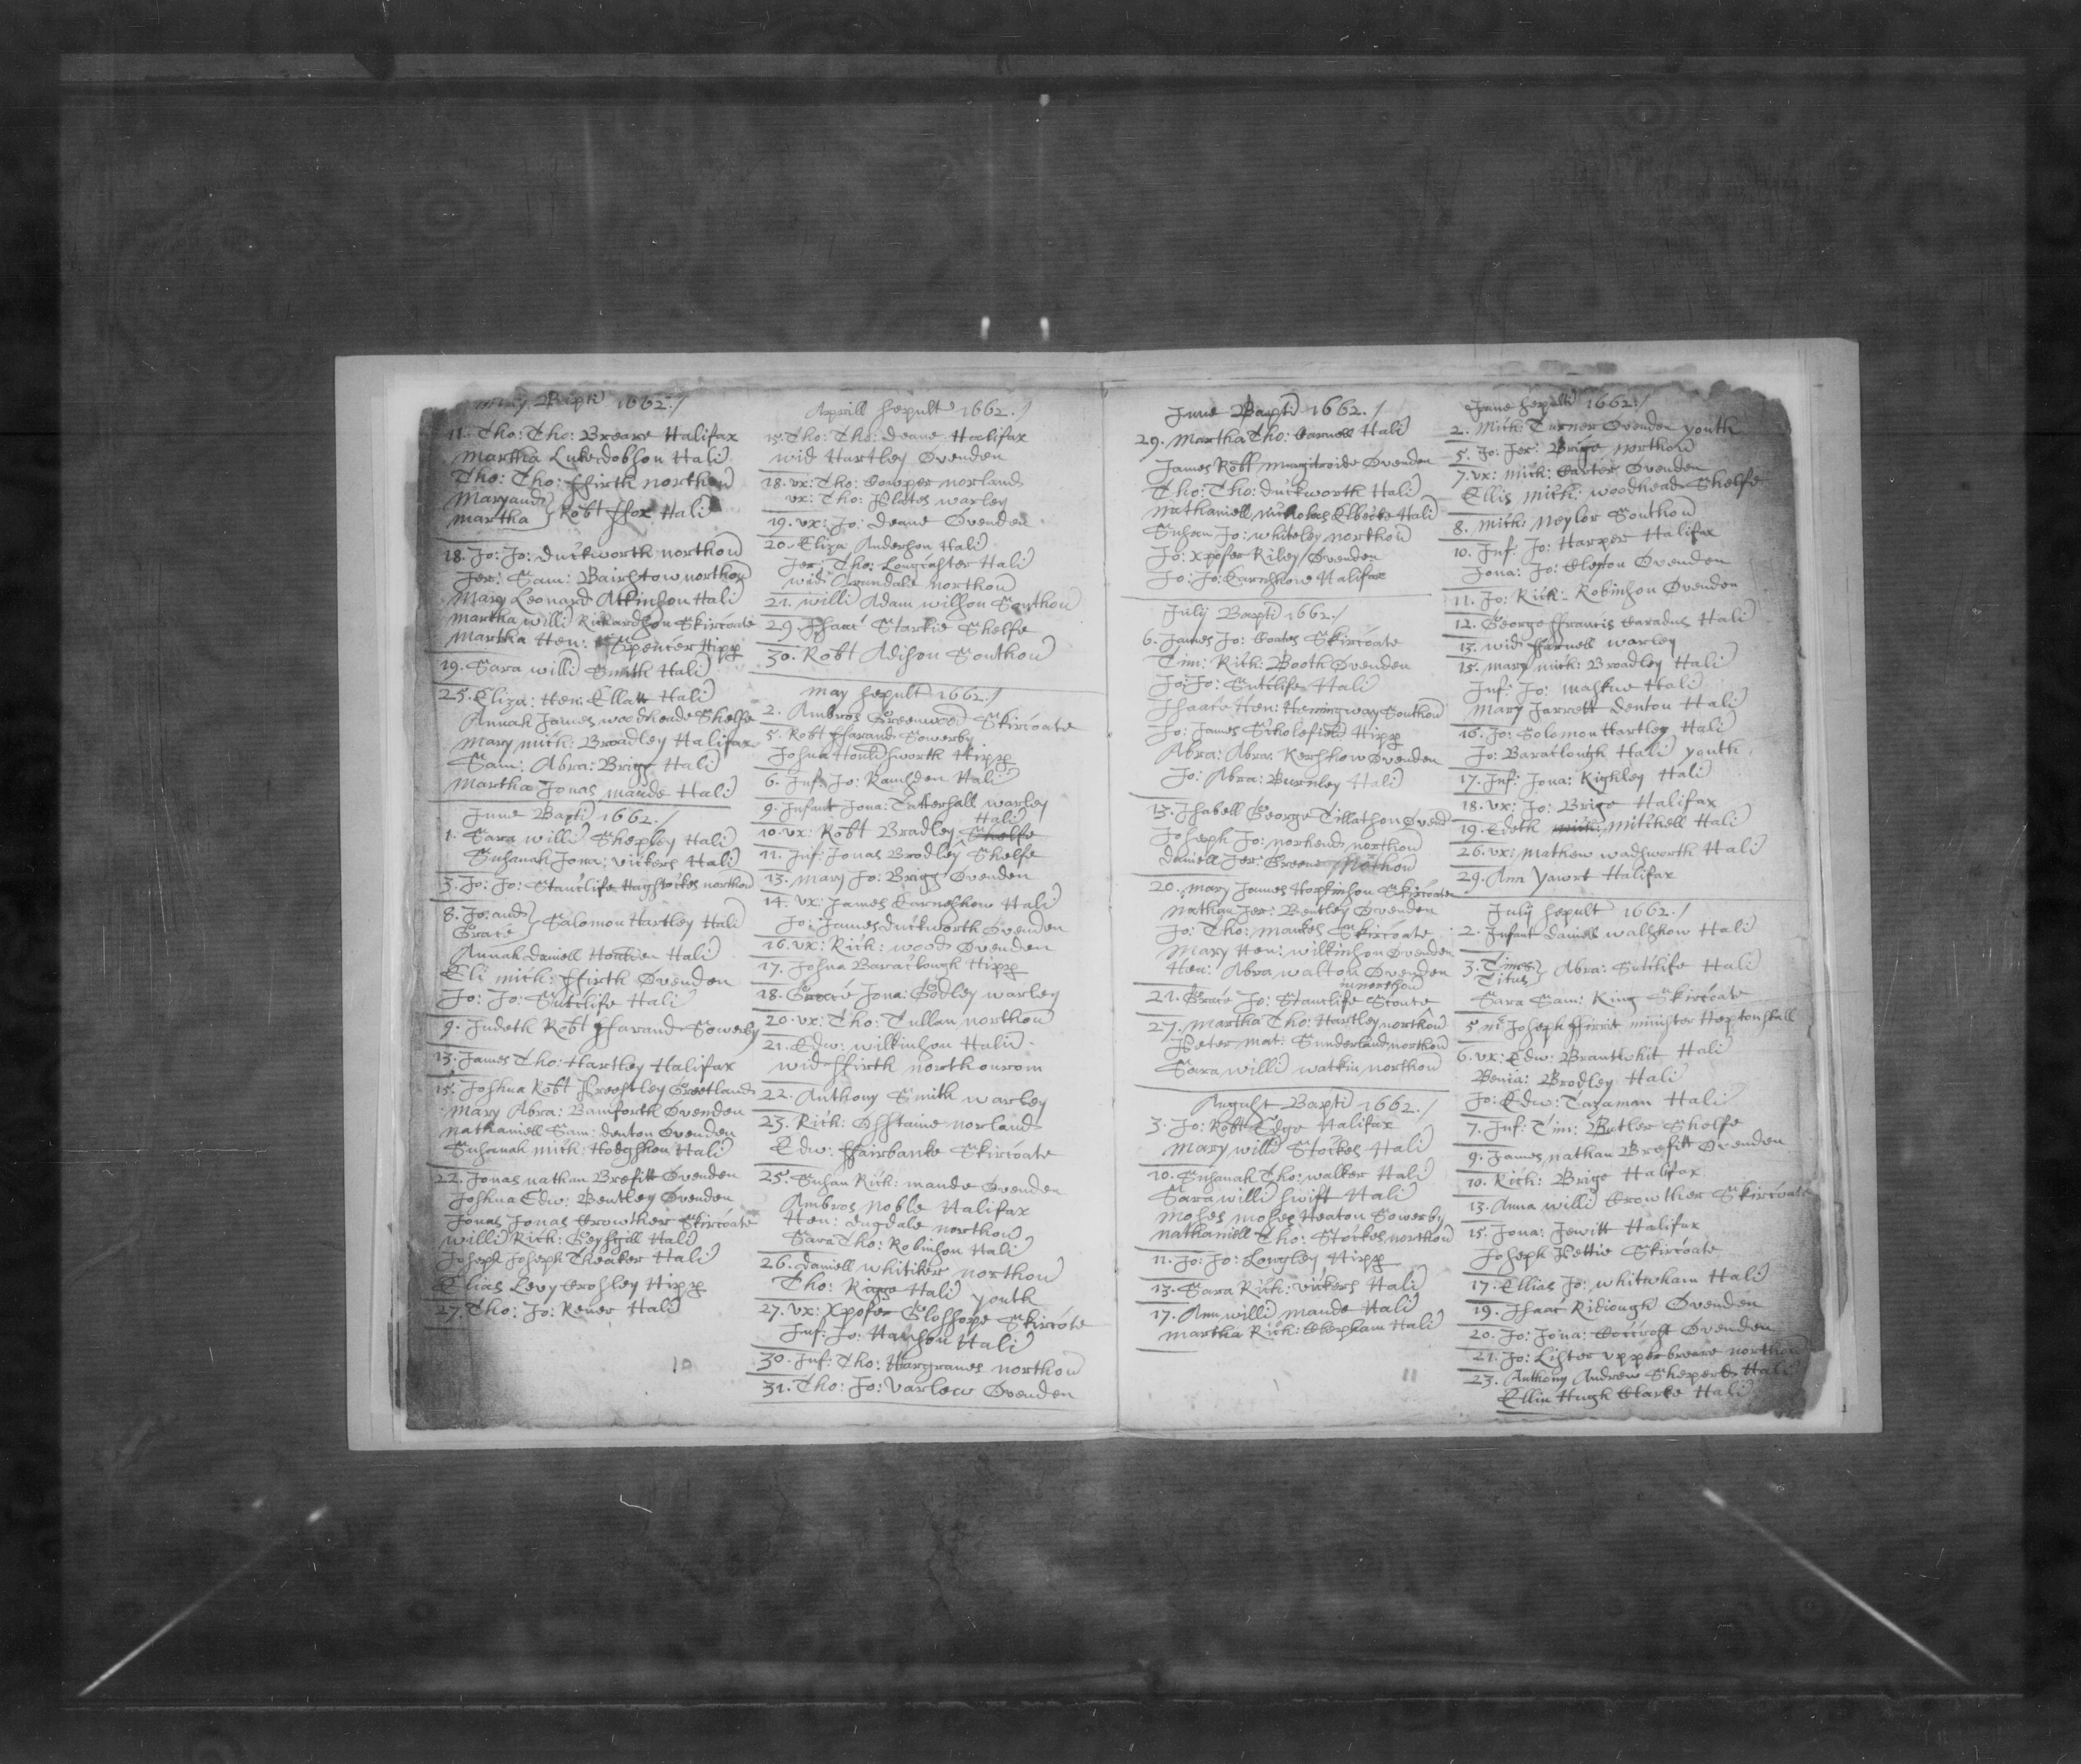 May Bapti 1662./
11. Tho: Tho: Breare Halifax
Martha Luke dobson Hali
Tho: Tho: ffirth northou
Mary and
Martha } Robt ffox Hali
18. Jo: Jo: duckworth northou
Jer: Sam: Bairstow northou
Mary Leonard Atkinson Hali
martha willi Rickardson Skircoate
Martha Hen: Spencer Hipp
19. Sara willi Smith Hali
25. Eliza: Hen: Ellatt Hali
Annah James woodheade Shelfe
Mary mich: Broadley Halifax
Sam: Abra: Brigg Hali
Martha Jonas maude Hali
June Bapti 1662./
1. Sara willi Shepley Hali
Susanah Jona: vickers Hali
3. Jo: Jo: Stancliffe Hagstockes northou
8. Jo: and
Grace } Salomon Hartley Hali
Annah daniell Hali
Eli mich: ffirth Ovenden
Jo: Jo: Sutclife Hali
9. Judeth Robt ffarand Sowerby
13. James Tho: Hartley Halifax
15. Joshua Robt Preestley Greetland
Mary Abra: Bamforth Ovenden
nathaniell Sam: denton Ovenden
Susanah mich: Hodgshon Hali
22. Jonas nathan Brefitt Ovenden
Joshua Edw: Bentley Ovenden
Jonas Jonas Crowther Skircoate
willi Rich: Hali
Joseph Joseph Theaker Hali
Elias Levy Crosley Hipp
27. Tho: Jo: Rener Hali
10
Aprill sepult 1662./
15. Tho: Tho: deane Halifax
wid Hartley Ovenden
18. vx: Tho: Cowper norland
vx: Tho: Plates warley
19. vx: Jo: deane Ovenden
20. Eliza Anderson Hali
Jer: Tho: Longcaster Hali
wid: Arundale northou
21. willi Adam wilson Southou
29. Isaac Starkie Shelfe
30. Robt Adison Southou
May sepult 1662./
2. Ambros Greenwood Skircoate
5. Robt ffarand Sowerby
Joshua Houldsworth Hipp
6. Inf: Jo: Ramsden Hali
9. Infant Jona: Tattersall warley
Hali
10. vx: Robt Bradley Shelfe
11. Inf: Jonas Brodley Shelfe
13. Mary Jo: Brigg Ovenden
14. vx: James Earneshow Hali
Jo: James duckworth Ovenden
16. vx: Rich: wood Ovenden
17. Joshua Baraclough Hipp
18. Grace Jona: Godley warley
20. vx: Tho: Tullan northou
21. Edw: wilkinson Hali
wid ffirth northourom
22. Anthony Smith warley
23. Rich: Norland
Edw: ffairbanke Skircoate
25. Susan Rich: maude Ovenden
Ambros Noble Halifax
Hen: dugdale northou
Sara Tho: Robinson Hali
26. daniell whitiker northou
Tho: Rigge Hali youth
27. vx: Xpofer Glossope Skircote
Inf: Jo: Hanson Hali
30. Inf: Tho: Hargraues northou
31. Tho: Jo: Varlew Ovenden
June Bapti 1662./
29. Martha Tho: Hali
James Robt Murgitroide Ovenden
Tho: Tho: duckworth Hali
nathaniell Nickolas Hali
Susan Jo: whiteley northou
Jo: Xpofer Riley Ovenden
Jo: Jo: Earnshow Halifax
July Bapti 1662./
6. James Jo: Coates Skircoate
Tim: Rich: Booth Ovenden
Jo: Jo: Sutclife Hali
Isaace Hen: Hemingway Southou
Jo: James Scholefield Hipp
Abra: Abra: Kershow Ovenden
Jo: Abra: Burnley Hali
13. Isabell George Tillatson Ovend
Joseph Jo: norhend northou
daniell Jer: Greene Nothou
20. Mary James Hopkinson Skircoate
Nathan Jer: Bentley Ovenden
Jo: Tho: Mankes Skircoate
Mary Hen: wilkinson Ovenden
Hen: Abra walton Ovenden
in northou
21. Grace Jo: Stancliffe Scoute
27. Martha Tho: Hartley northou
Peter mat: Sunderland northou
Sara willi watkin northou
August Bapti 1662./
3. Jo: Robt Edge Halifax
Mary willi Stockes Hali
10. Susanah Tho: walker Hali
Sara willi swift Hali
Moses moses Heaton Sowerby
nathaniell Tho: Stockes northou
11. Jo: Jo: Longley Hipp
13. Sara Rich: vickers Hali
17. Ann willi maude Hali
Martha Rich: Hali
11
June sepulti 1662./
2. Mich: Turner Ovenden youth
5. Jo: Jer: Brige northou
7. vx: mich: Carter Ovenden
Ellis mich: woodhead Shelfe
8. mich: Neylor Southou
10. Inf: Jo: Harper Halifax
Jona: Jo: Ovenden
11. Jo: Rich: Robinson Ovenden
12. George ffrancis Hali
13. wid: ffarnell warley
15. Mary mich: Broadley Hali
Inf: Jo: Maskue Hali
Mary Jarrett denton Hali
16. Jo: Solomon Hartley Hali
Jo: Baraclough Hali youth
17. Inf: Jona: Kighley Hali
18. vx: Jo: Brige Halifax
19. Edeth mich: mitchell Hali
26. vx: mathew wadsworth Hali
29. Ann Yawrt Halifax
July sepult 1662./
2. Infant daniell walshow Hali
3. Times
Titus } Abra: Sutclife Hali
Sara Sam: King Skircoate
5 mr Joseph ffirrit minister Heptonstall
6. vx: Edw: Brantwhit Hali
Benia: Brodley Hali
Jo: Edw: Tazaman Hali
7. Inf: Tim: Butler Shelfe
9. James nathan Brefitt Ovenden
10. Rich: Brige Halifax
13. Anna willi Crowther Skircoate
15. Jona: Jewitt Halifax
Joseph Pettie Skircoate
17. Ellias Jo: whitwham Hali
19. Isaac Ridiough Ovenden
20. Jo: Jona: Coccroft Ovenden
21. Jo: Lister upper breare northou
23. Anthony Andrew Sheperd Hali
Ellin Hugh Clarke Hali